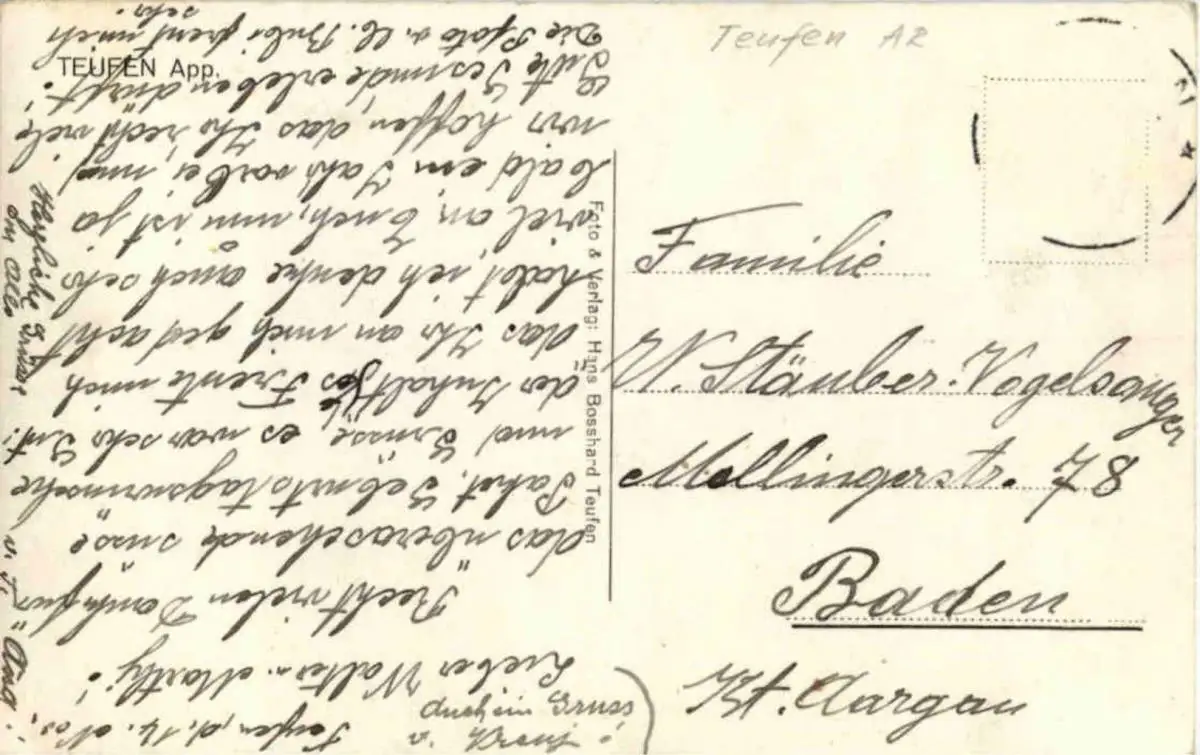 Teufen AR
TEUFEN App.
Foto & Verlag: Hans Bosshard Teufen
Familie
W. Stäuber-Vogelsanger
Mellingerstr. 78
Baden
Kt. Aargau
Teufen, d. 14. Nov.
Lieber Walter u. Marthy!
Recht vielen Dank für
das überaschende süsse
Paket, Gebutstagswünsche
und Grüsse, es war sehr Gut
der Inhalt, es Freute mich
das Ihr an mich gedacht
habt, ich denke auch sehr
viel an Euch, nun ist ja
bald ein Jahr vorbei, und
wir hoffen, das Ihr recht viele
Gute Gesunde erleben dürft!
Die Photo v. lb. Bubi freut mich
sehr.
Herzliche Grüsse
an alle
v.